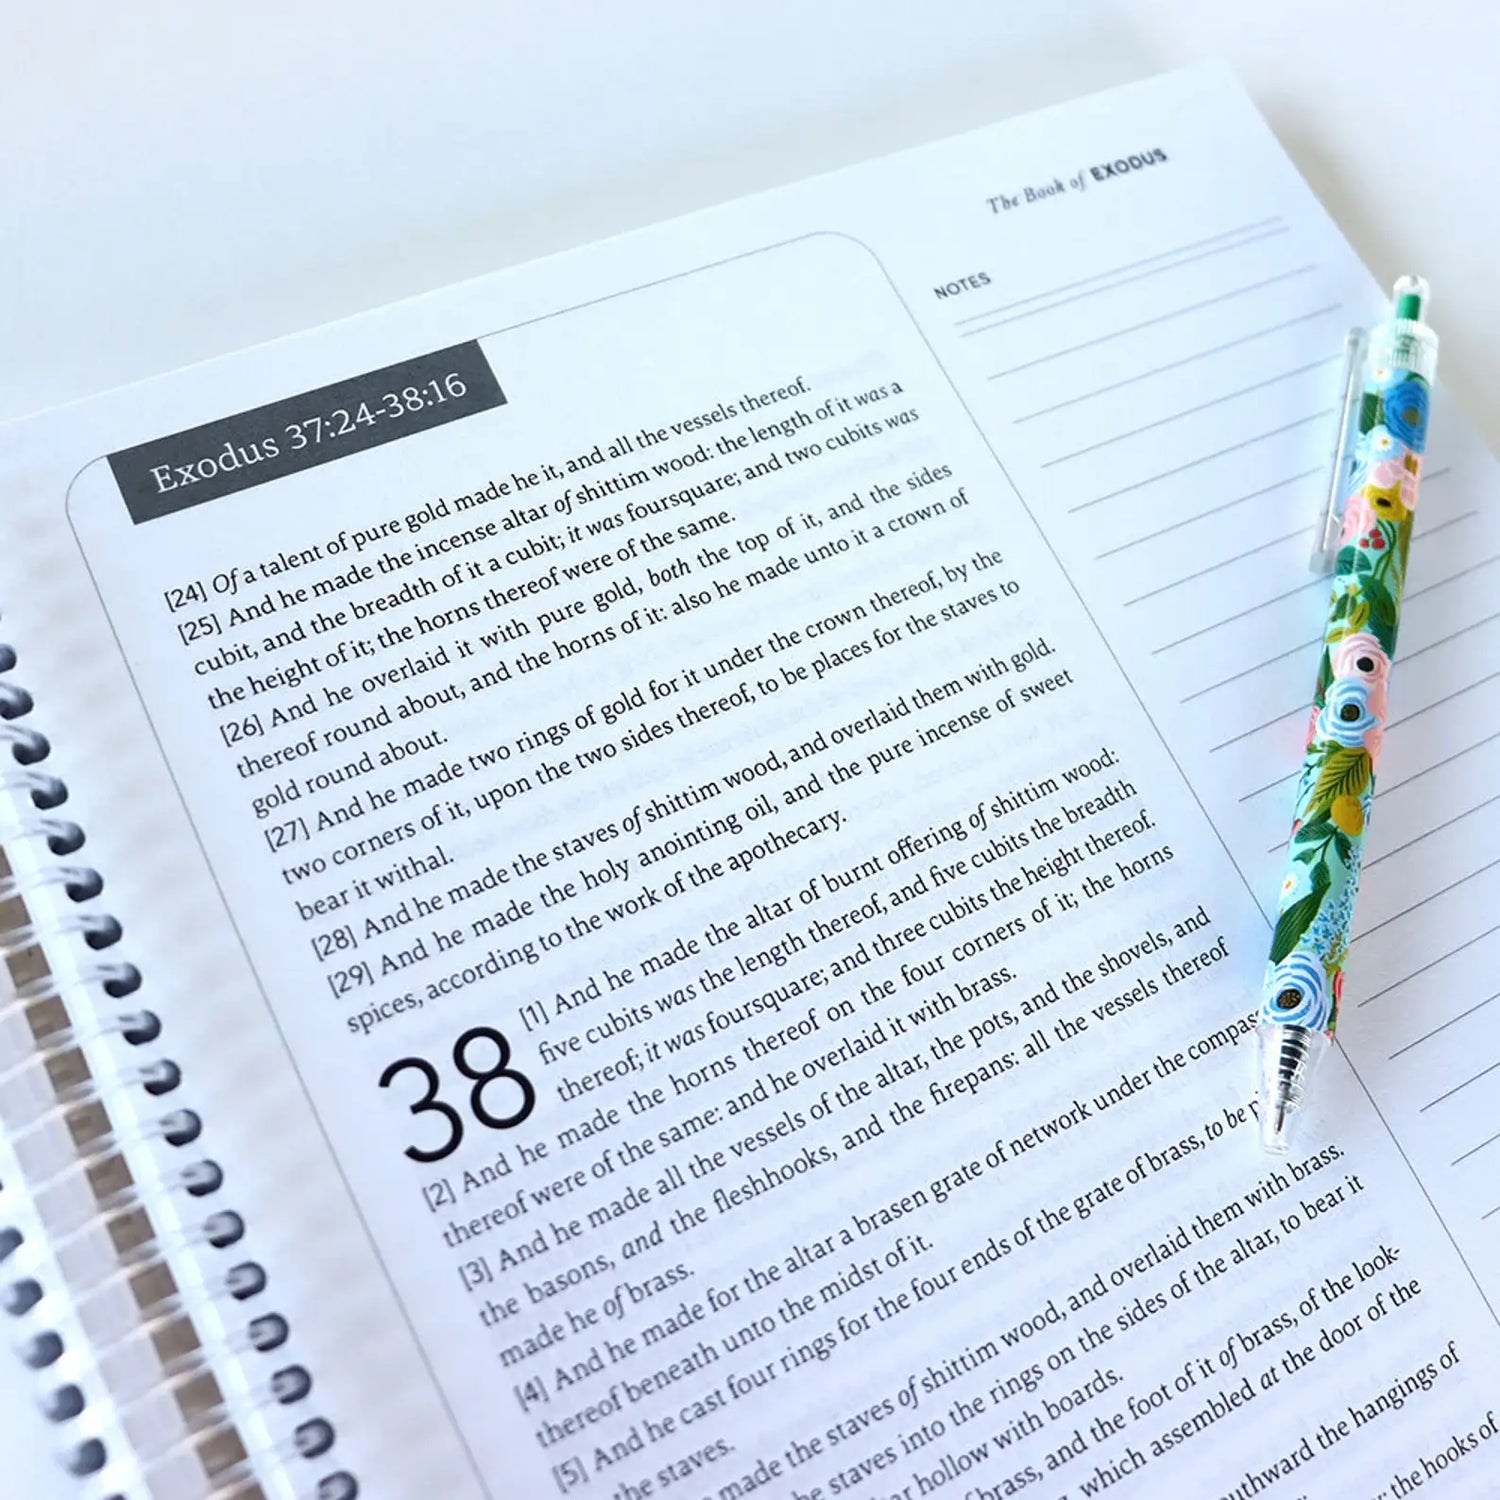 The Book of EXODUS
NOTES
Exodus 37:24-38:16
[24] Of a talent of pure gold made he it, and all the vessels thereof.
[25] And he made the incense altar of shittim wood: the length of it was a
cubit, and the breadth of it a cubit; it was foursquare; and two cubits was
the height of it; the horns thereof were of the same.
[26] And he overlaid it with pure gold, both the top of it, and the sides
thereof round about, and the horns of it: also he made unto it a crown of
gold round about.
[27] And he made two rings of gold for it under the crown thereof, by the
two corners of it, upon the two sides thereof, to be places for the staves to
bear it withal.
[28] And he made the staves of shittim wood, and overlaid them with gold.
[29] And he made the holy anointing oil, and the pure incense of sweet
spices, according to the work of the apothecary.
38
[1] And he made the altar of burnt offering of shittim wood:
five cubits was the length thereof, and five cubits the breadth
thereof; it was foursquare; and three cubits the height thereof.
[2] And he made the horns thereof on the four corners of it; the horns
thereof were of the same: and he overlaid it with brass.
[3] And he made all the vessels of the altar, the pots, and the shovels, and
the basons, and the fleshhooks, and the firepans: all the vessels thereof
made he of brass.
[4] And he made for the altar a brasen grate of network under the compass
thereof beneath unto the midst of it.
[5] And he cast four rings for the four ends of the grate of brass, to be
the staves.
made the staves of shittim wood, and overlaid them with brass.
he staves into the rings on the sides of the altar, to bear it
hollow with boards.
brass, and the foot of it of brass, of the look-
which assembled at the door of the
uthward the hangings of
the hooks of